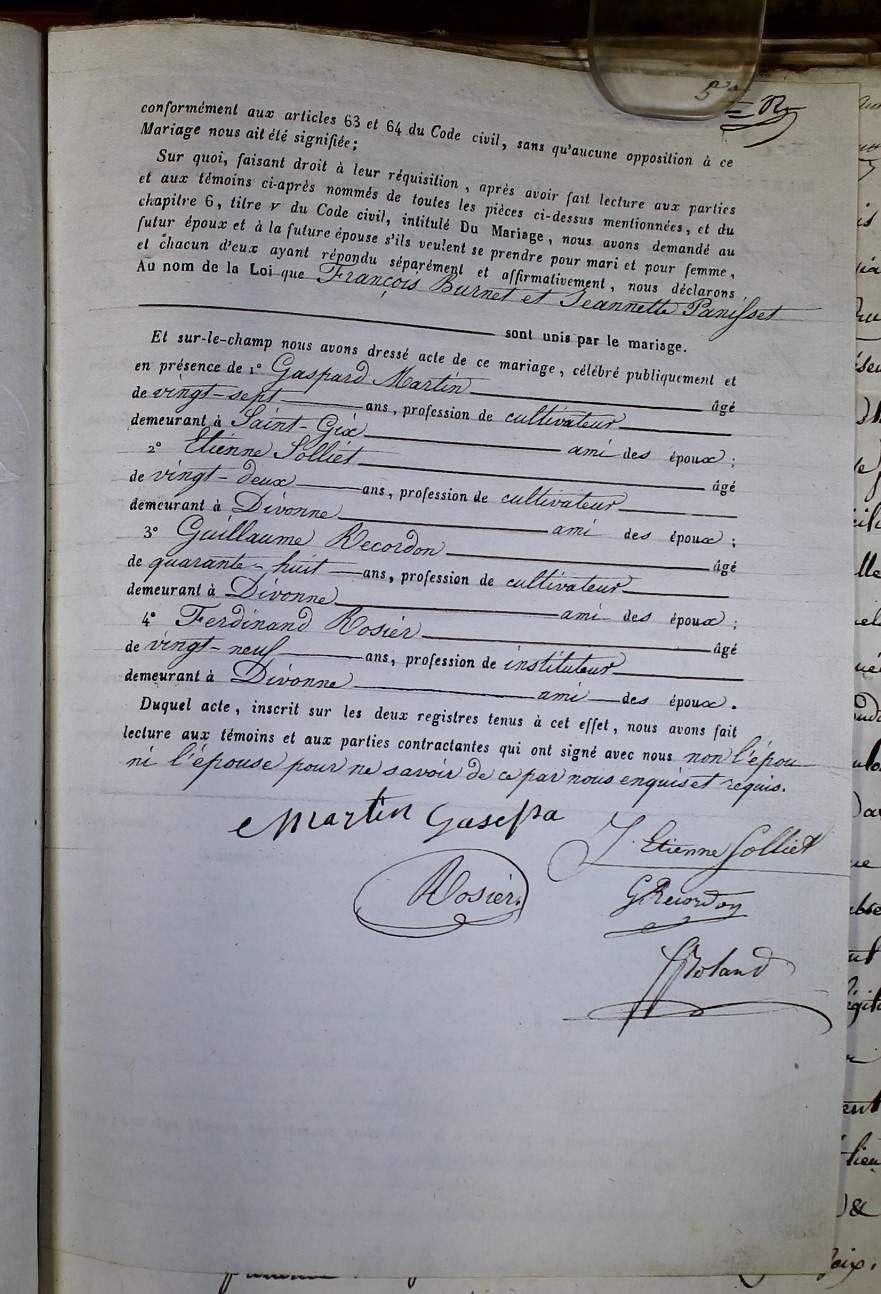 5
conformément aux articles 63 et 64 du Code civil, sans qu'aucune opposition à ce
Mariage nous ait été signifiée;
Sur quoi, faisant droit à leur réquisition, après avoir fait lecture aux parties
et aux témoins ci-après nommés de toutes les pièces ci-dessus mentionnées, et du
chapitre 6, titre v du Code civil, intitulé Du Mariage, nous avons demandé au
futur époux et à la future épouse s'ils veulent se prendre pour mari et pour femme,
et chacun d'eux ayant répondu séparément et affirmativement, nous déclarons
Au nom de la Loi que François Burnet et Jeannette Panisset
sont unis par le mariage.
Et sur-le-champ nous avons dressé acte de ce mariage, célébré publiquement et
en présence de 1° Gaspard Martin âgé
de vingt-sept ans, profession de cultivateur
demeurant à Saint-Gix ami des époux;
2° Etienne Solliet âgé
de vingt-deux ans, profession de cultivateur
demeurant à Divonne ami des époux;
3° Guillaume Recordon âgé
de quarante-huit ans, profession de cultivateur
demeurant à Divonne ami des époux;
4° Ferdinand Rosier âgé
de vingt-neuf ans, profession de instituteur
demeurant à Divonne ami des époux.
Duquel acte, inscrit sur les deux registres tenus à cet effet, nous avons fait
lecture aux témoins et aux parties contractantes qui ont signé avec nous non l'épou
ni l'épouse pour ne savoir de ce par nous enquis et requis.
Martin Gaspa
J. Etienne Solliet
Rosier
G Recordon
Roland